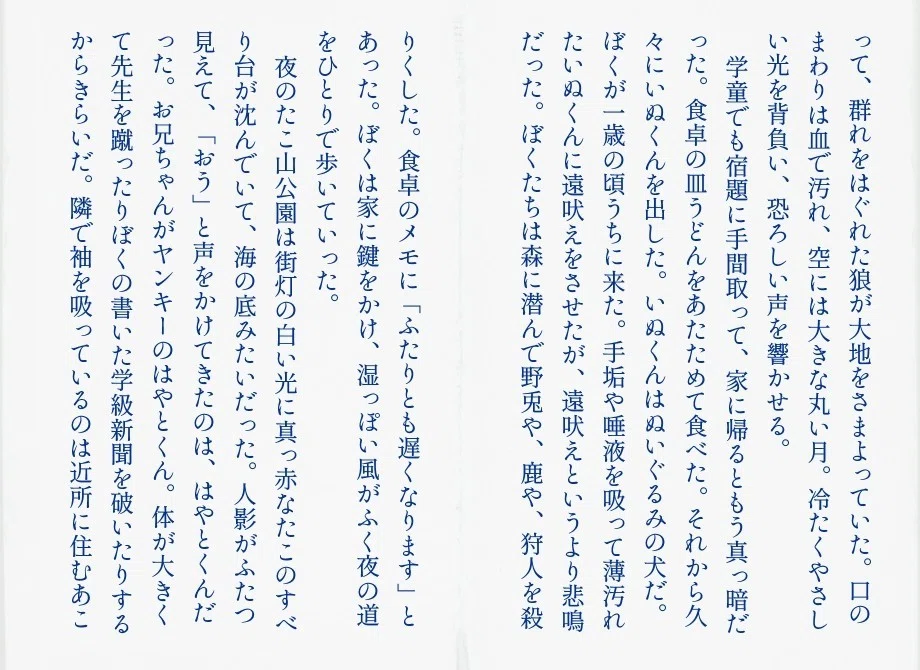 って、群れをはぐれた狼が大地をさまよっていた。口の
まわりは血で汚れ、空には大きな丸い月。冷たくやさし
い光を背負い、恐ろしい声を響かせる。
学童でも宿題に手間取って、家に帰るともう真っ暗だ
った。食卓の皿うどんをあたためて食べた。それから久
々にいぬくんを出した。いぬくんはぬいぐるみの犬だ。
ぼくが一歳の頃うちに来た。手垢や唾液を吸って薄汚れ
たいぬくんに遠吠えをさせたが、遠吠えというより悲鳴
だった。ぼくたちは森に潜んで野兎や、鹿や、狩人を殺
りくした。食卓のメモに「ふたりとも遅くなります」と
あった。ぼくは家に鍵をかけ、湿っぽい風がふく夜の道
をひとりで歩いていった。
夜のたこ山公園は街灯の白い光に真っ赤なたこのすべ
り台が沈んでいて、海の底みたいだった。人影がふたつ
見えて、「おう」と声をかけてきたのは、はやとくんだ
った。お兄ちゃんがヤンキーのはやとくん。体が大きく
て先生を蹴ったりぼくの書いた学級新聞を破いたりする
からきらいだ。隣で袖を吸っているのは近所に住むあこ